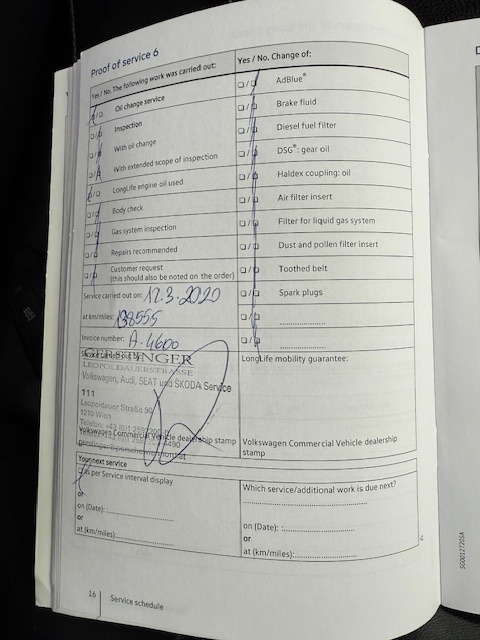 Proof of service 6
Yes / No. The following work was carried out:
❏/❏ Oil change service
❏/❏ Inspection
❏/❏ With oil change
❏/❏ With extended scope of inspection
❏/❏ LongLife engine oil used
❏/❏ Body check
❏/❏ Gas system inspection
❏/❏ Repairs recommended
❏/❏ Customer request
(this should also be noted on the order)
Service carried out on: 12.3.2020
at km/miles: 138555
Invoice number: A.4600
Service carried out by
LEOPOLDAUERSTRASSE
Volkswagen, Audi, SEAT und ŠKODA Service
111
Leopoldauer Straße 90
1210 Wien
Volkswagen Commercial Vehicle dealership stamp
Your next service
❏ as per Service interval display
or
on (Date):
or
at (km/miles):
Yes / No. Change of:
❏/❏ AdBlue®
❏/❏ Brake fluid
❏/❏ Diesel fuel filter
❏/❏ DSG®: gear oil
❏/❏ Haldex coupling: oil
❏/❏ Air filter insert
❏/❏ Filter for liquid gas system
❏/❏ Dust and pollen filter insert
❏/❏ Toothed belt
❏/❏ Spark plugs
❏/❏
❏/❏
LongLife mobility guarantee:
Volkswagen Commercial Vehicle dealership
stamp
Which service/additional work is due next?
on (Date):
or
at (km/miles):
16 Service schedule
SG0012720SA